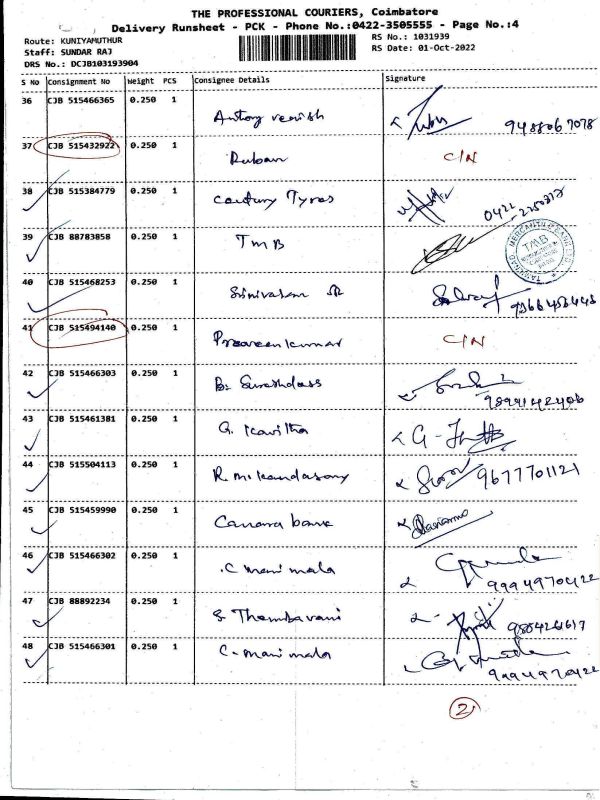 THE PROFESSIONAL COURIERS, Coimbatore
Delivery Runsheet - PCK - Phone No.:0422-3505555 - Page No.:4
Route: KUNIYAMUTHUR
RS No.: 1031939
Staff: SUNDAR RAJ
RS Date: 01-Oct-2022
DRS No.: DCJB103193904
S No Consignment No Weight PCS Consignee Details Signature
36 CJB 515466365 0.250 1 Antony venish 9488067078
37 CJB 515432922 0.250 1 Ruban C/N
38 CJB 515384779 0.250 1 century Tyres 0422
39 CJB 88783858 0.250 1 TMB
TMB
40 CJB 515468253 0.250 1 Srinivasan SR
41 CJB 515494140 0.250 1 Praveenkumar C/N
42 CJB 515466303 0.250 1 B. Sureshdass
43 CJB 515461381 0.250 1 G. Kavitha
44 CJB 515504113 0.250 1 R. Manikandasamy 9677701121
45 CJB 515459990 0.250 1 Canara bank
46 CJB 515466302 0.250 1 C mani mala 9994970422
47 CJB 88892234 0.250 1 S. Thembavani
48 CJB 515466301 0.250 1 C. mani mala 9994970422
2